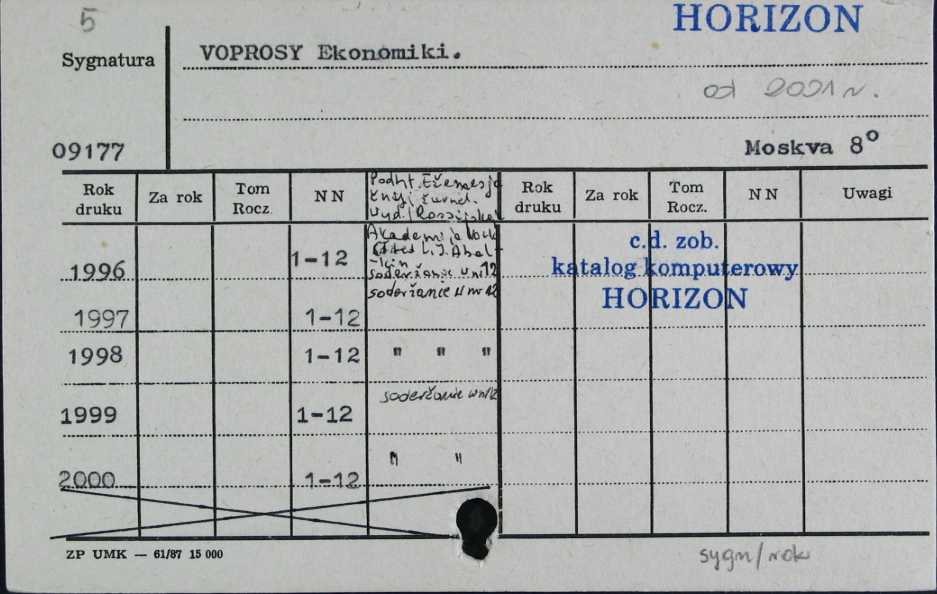 5
HORIZON
Sygnatura
VOPROSY Ekonomiki.
od 2001 r.
09177
Moskva 8°
Rok druku
Za rok
Tom Rocz.
NN
Podtit. Ežemesja
čnyj žurnal.
Rok druku
Za rok
Tom Rocz.
NN
Uwagi
Akademija
c.d. zob.
katalog komputerowy
HORIZON
1996 1-12
soderžanie w nr 12
soderžanie w nr 12
1997 1-12
1998 1-12 " " "
soderžanie w nr 12
1999 1-12
2000 1-12 " "
ZP UMK — 61/87 15 000
sygn/rok